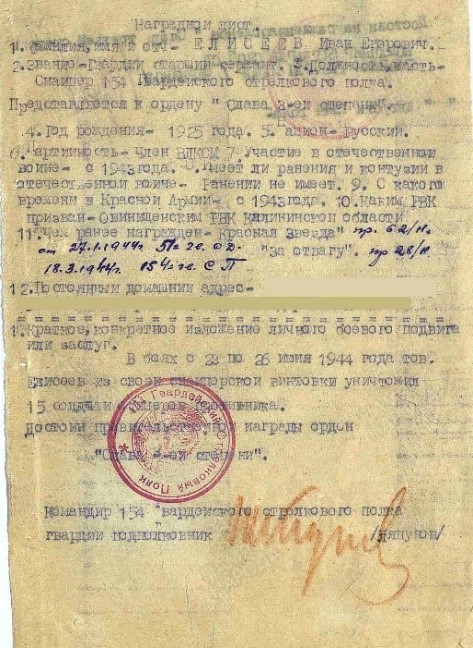 Наградной лист.
1. Фамилия, имя и отч- ЕЛИСЕЕВ Иван Егорович.-
2. Звание- Гвардии старший сержант. 3. Должность, часть-
Снайпер 154 Гвардейского стрелкового полка.
Представляется к ордену "Слава 3-ей степени".
4. Год рождения- 1925 года. 5. Русский.
6. Партийность- Член ВЛКСМ 7. Участие в отечественной
войне- с 1943 года. 8. Имеет ли ранения и контузии в
отечественной войне- Ранений не имеет. 9. С какого
времени в Красной Армии- с 1943 года. 10. Каким РВК
призван- Овинищенским РВК Калининской области
11. Чем ранее награжден- "Красная Звезда" пр. 62/н.
от 27.1.1944г. 51 "За отвагу". пр 28/н
18.3.1944г. 154 СП
12. Постоянный домашний адрес-
1. Краткое, конкретное изложение личного боевого подвига
или заслуг.
В боях с 23 по 26 июня 1944 года тов.
Елисеев из своей снайперской винтовки уничтожил
15 солдат и противника.
Достоин правительственной награды орден
"Слава 3-ей степени".
Гвардейский Стрелковый Полк
Командир 154 гвардейского стрелкового полка
гвардии подполковник